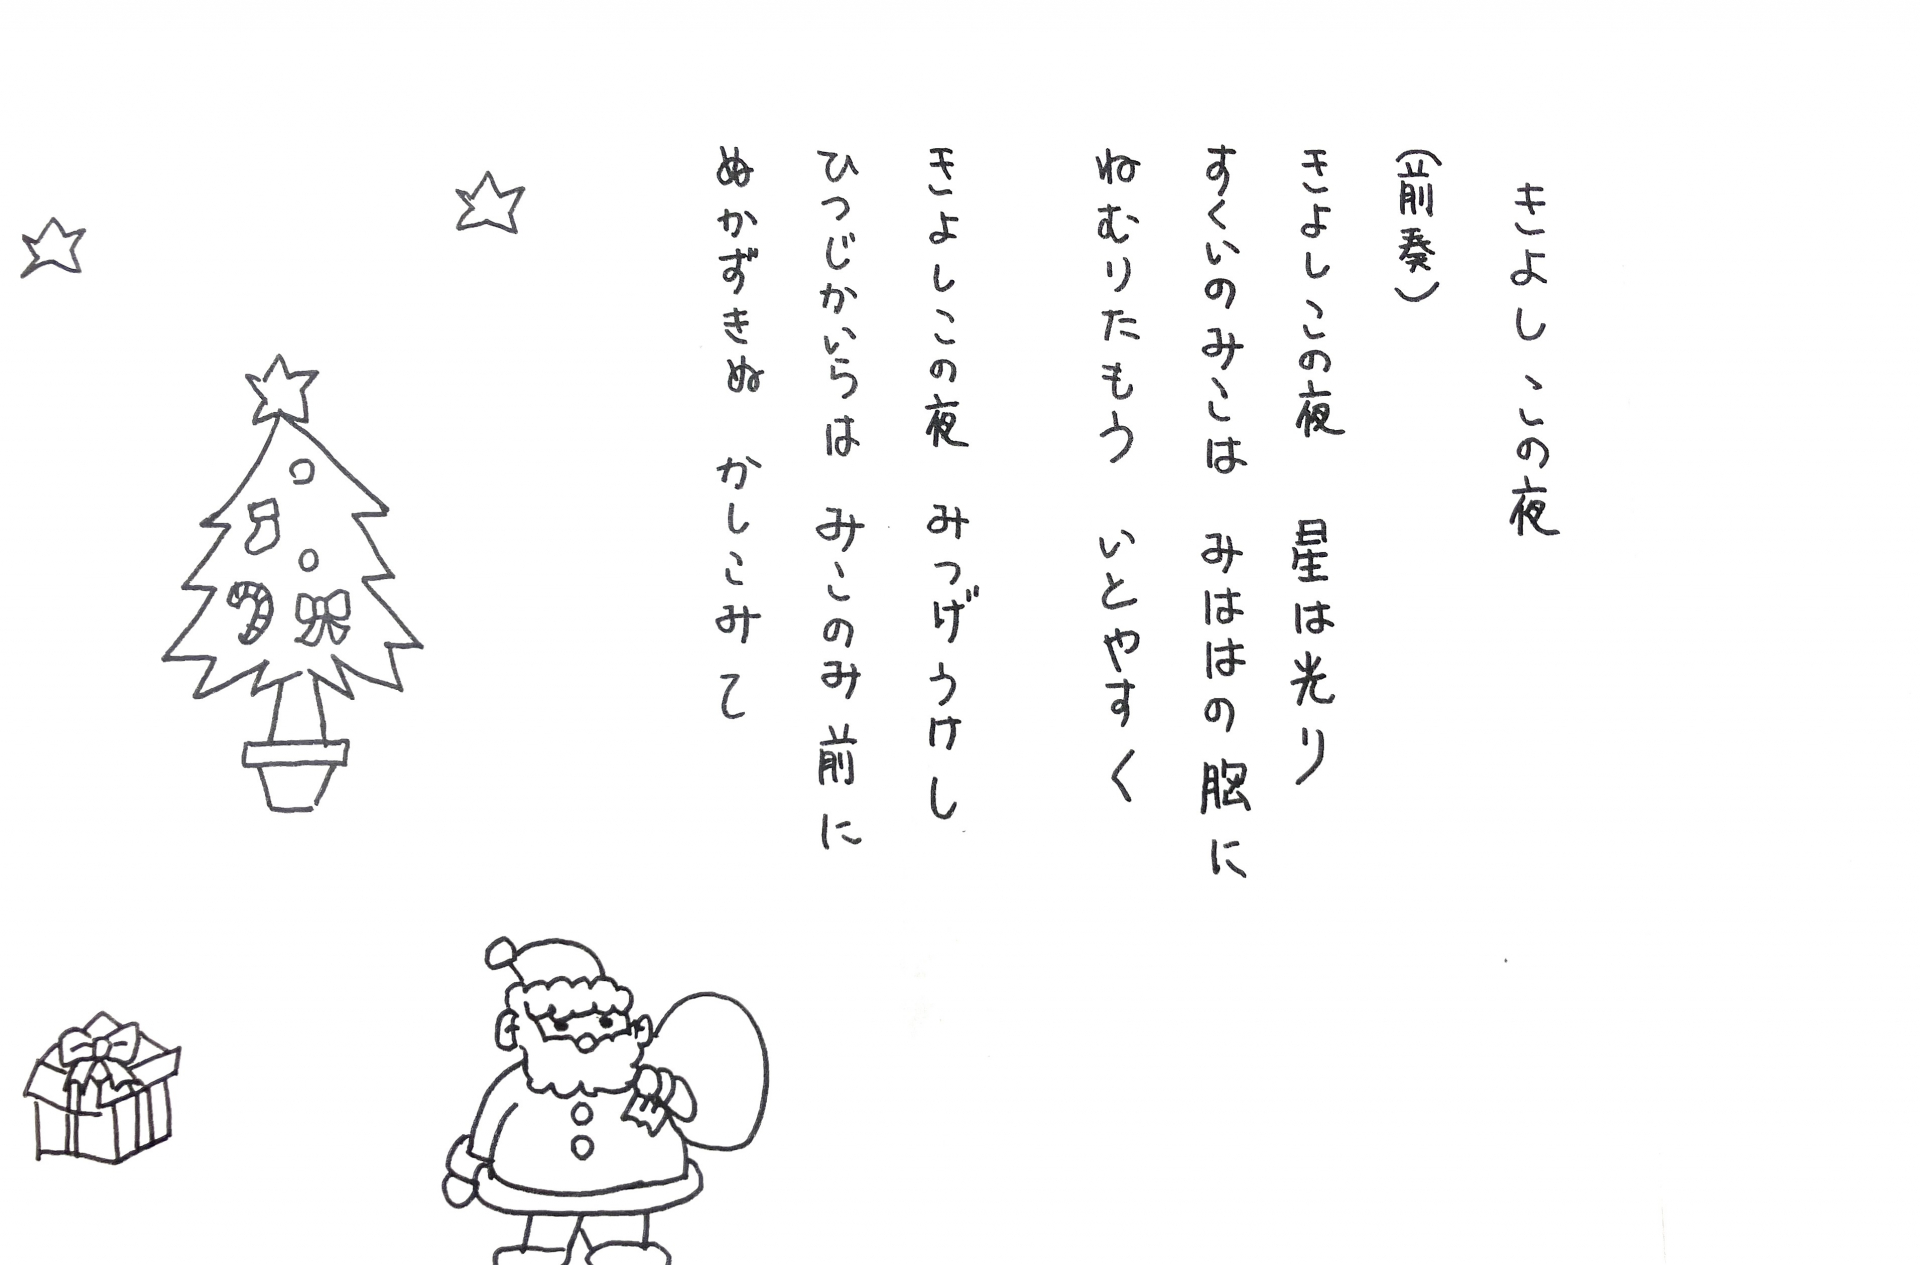 きよしこの夜
(前奏)
きよしこの夜　星は光り
すくいのみこは　みははの胸に
ねむりたもう　いとやすく
きよしこの夜　みつげうけし
ひつじかいらは　みこのみ前に
ぬかずきぬ　かしこみて